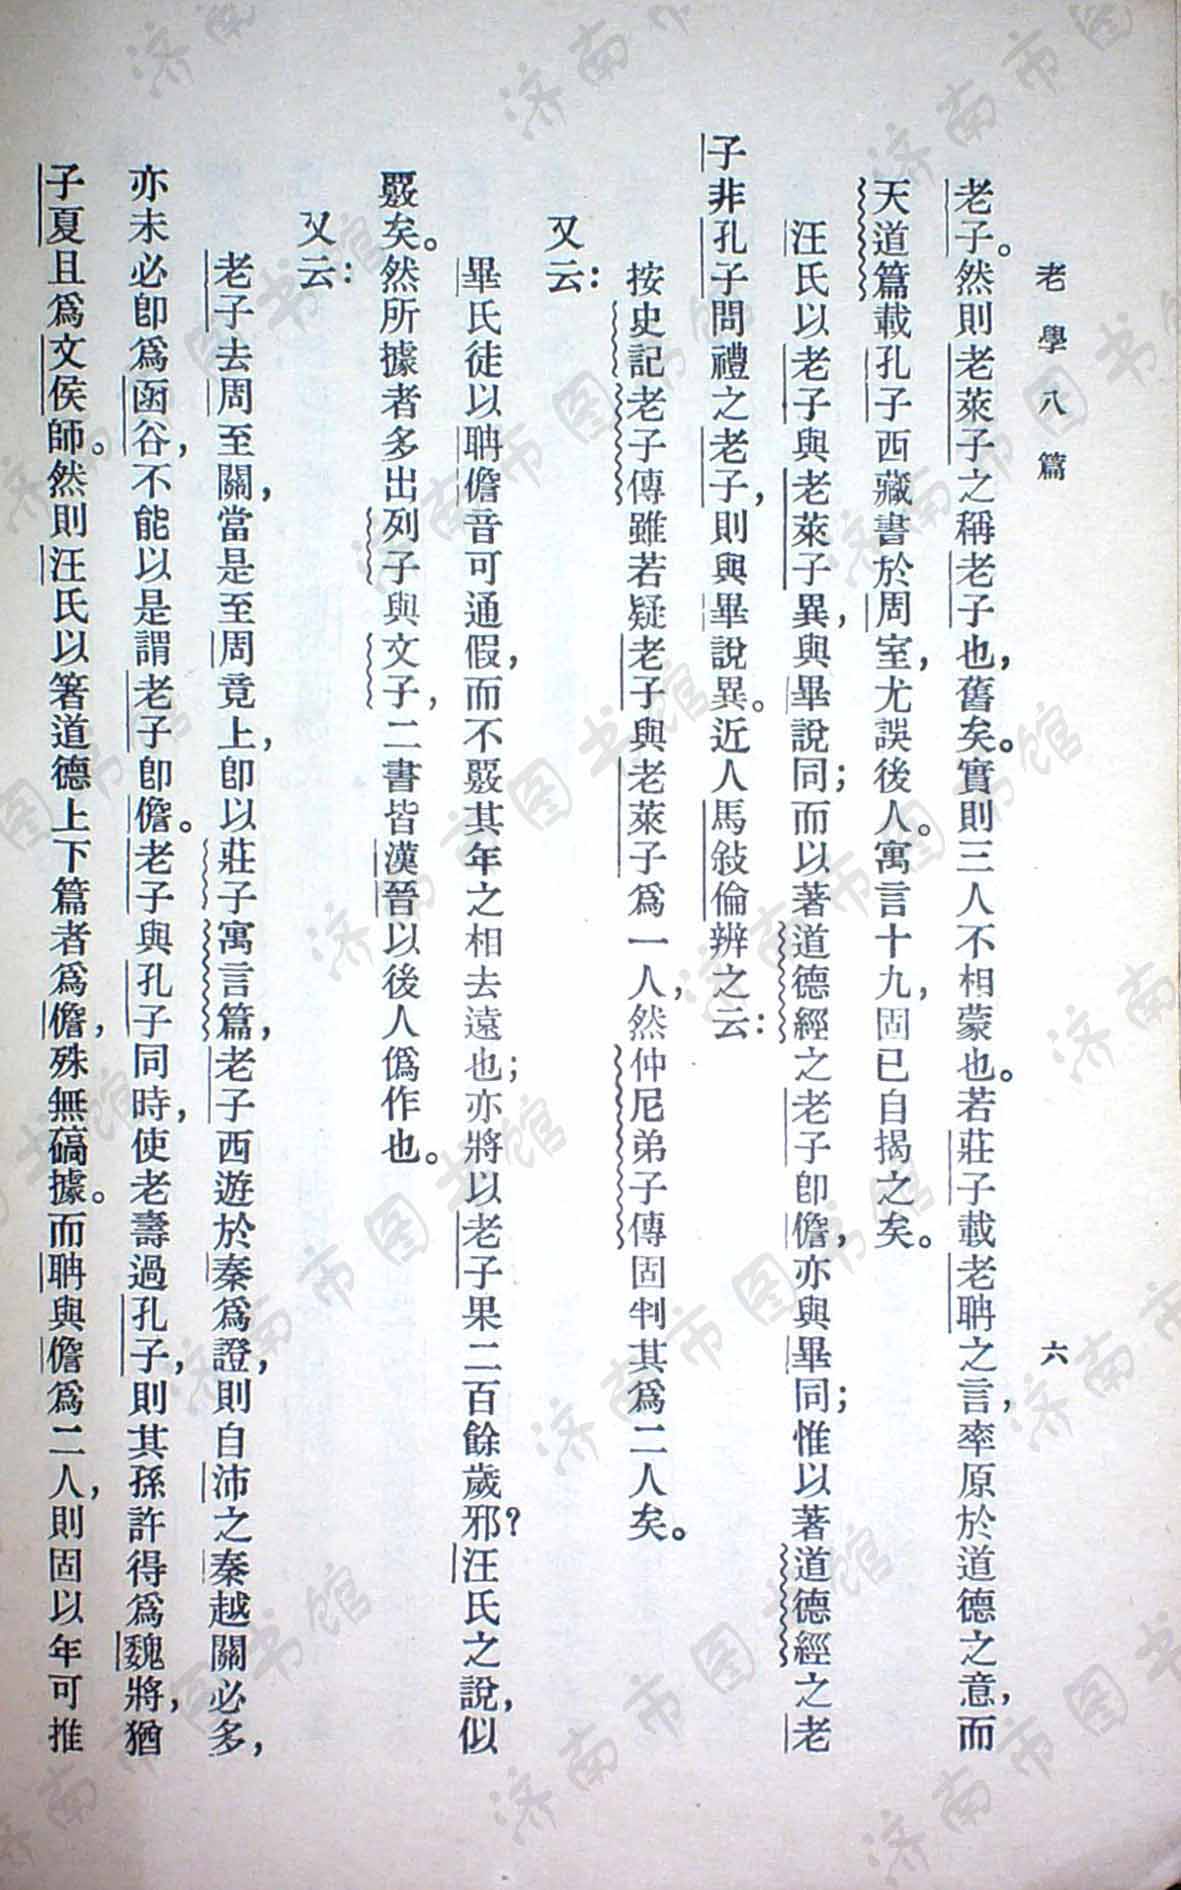 老學八篇　六
老子。然則老萊子之稱老子也，舊矣。實則三人不相蒙也。若莊子載老聃之言，率原於道德之意，而
天道篇載孔子西藏書於周室，尤誤後人。寓言十九，固已自揭之矣。
汪氏以老子與老萊子異，與畢說同；而以著道德經之老子卽儋，亦與畢同；惟以著道德經之老
子非孔子問禮之老子，則與畢說異。近人馬敍倫辨之云：
按史記老子傳雖若疑老子與老萊子爲一人，然仲尼弟子傳固判其爲二人矣。
又云：
畢氏徒以聃儋音可通假，而不覈其年之相去遠也；亦將以老子果二百餘歲邪？汪氏之說，似
覈矣。然所據者多出列子與文子，二書皆漢晉以後人僞作也。
又云：
老子去周至關，當是至周竟上，卽以莊子寓言篇，老子西遊於秦爲證，則自沛之秦越關必多，
亦未必卽爲函谷，不能以是謂老子卽儋。老子與孔子同時，使老壽過孔子，則其孫許得爲魏將，猶
子夏且爲文侯師。然則汪氏以箸道德上下篇者爲儋，殊無碻據。而聃與儋爲二人，則固以年可推
济南市图书馆